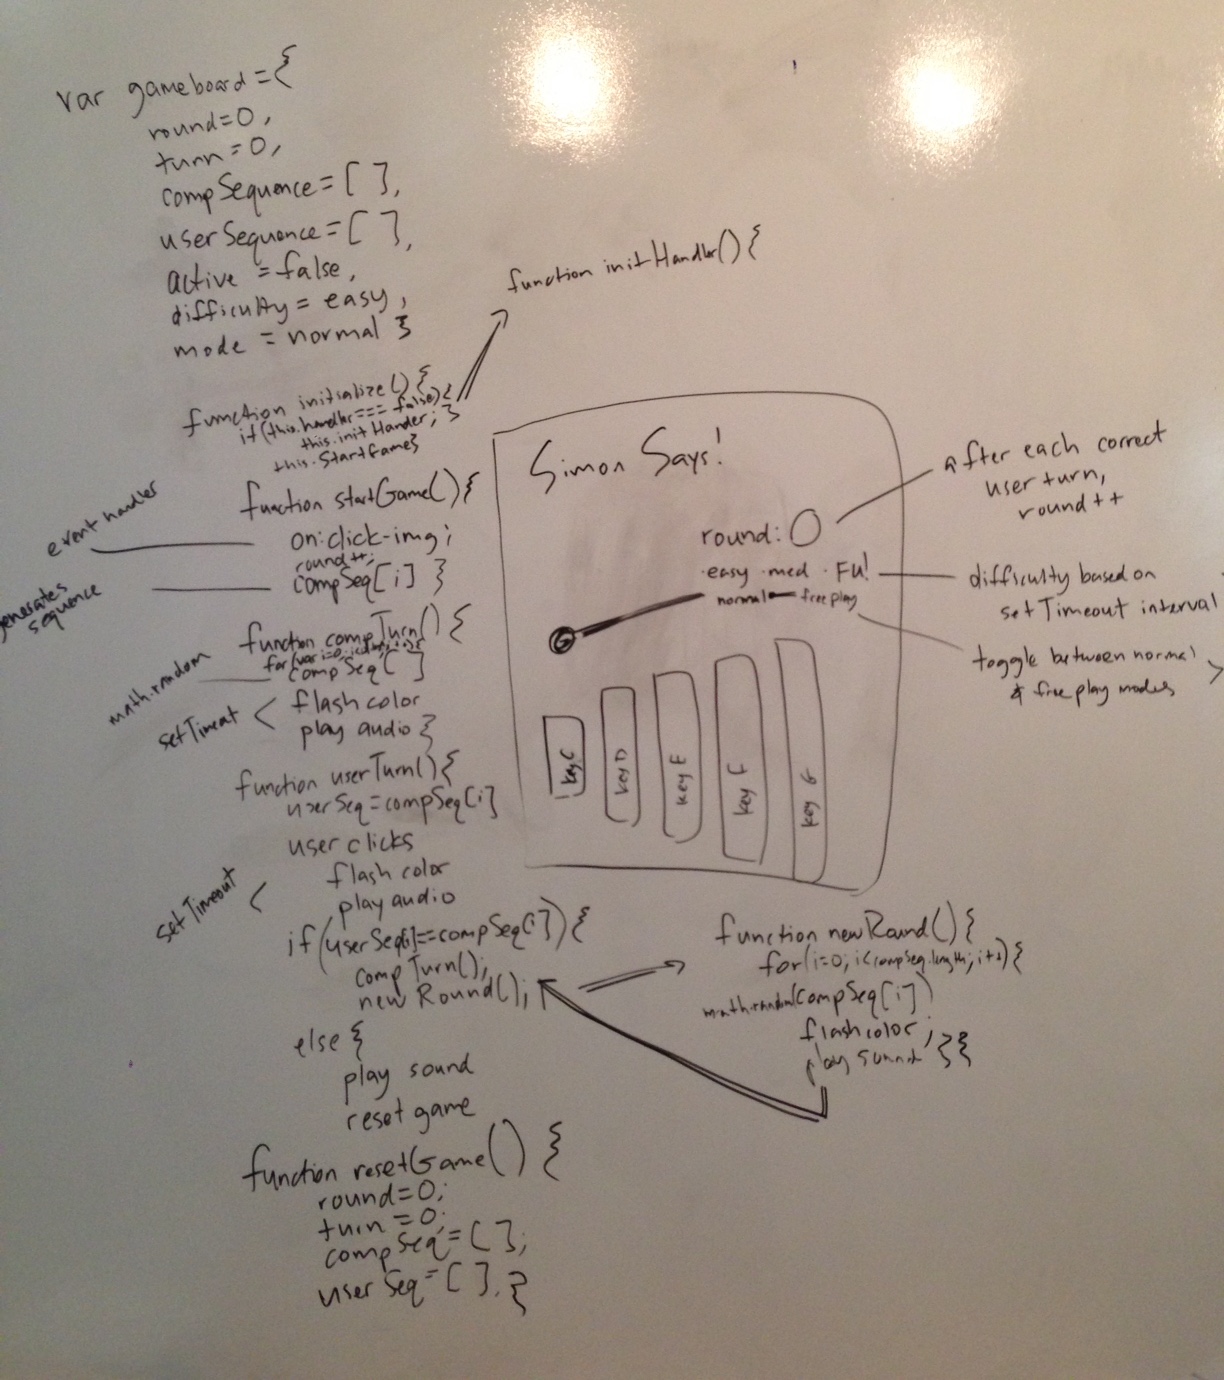 var gameboard = {
round=0,
turn=0,
compSequence=[ ],
userSequence=[ ],
active = false,
difficulty = easy,
mode = normal }
function initialize() {
if(this.handler === false){
this.initHander; }
this.StartGame}
function initHandler() {
function startGame() {
on:click-img;
round++;
compSeq[i] }
event handler
generates
sequence
function compTurn() {
for(var i=0;
compSeq[ ]
flash color
play audio }
math.random
setTimeout <
function userTurn() {
userSeq=compSeq[i]
user clicks
flash color
play audio
setTimeout <
if(userSeq[i]==compSeq[i]) {
compTurn();
newRound();
else {
play sound
reset game
function resetGame() {
round=0;
turn=0;
compSeq=[ ];
userSeq=[ ]. }
Simon Says!
round: 0
·easy ·med ·FU!
normal free play
G
key C
key D
key E
key F
key G
after each correct
user turn,
round++
difficulty based on
setTimeout interval
toggle between normal
& free play modes
function newRound() {
for(i=0; i<compSeq.length; i++) {
math.random(compSeq[i])
flashcolor;
play sound }}